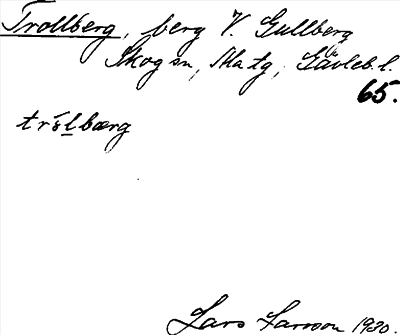 Trollberg, berg V. Gullberg
Skog sn, Ala tg, Gävleb. l.
65.
trålbærg
Lars Larsson 1930.